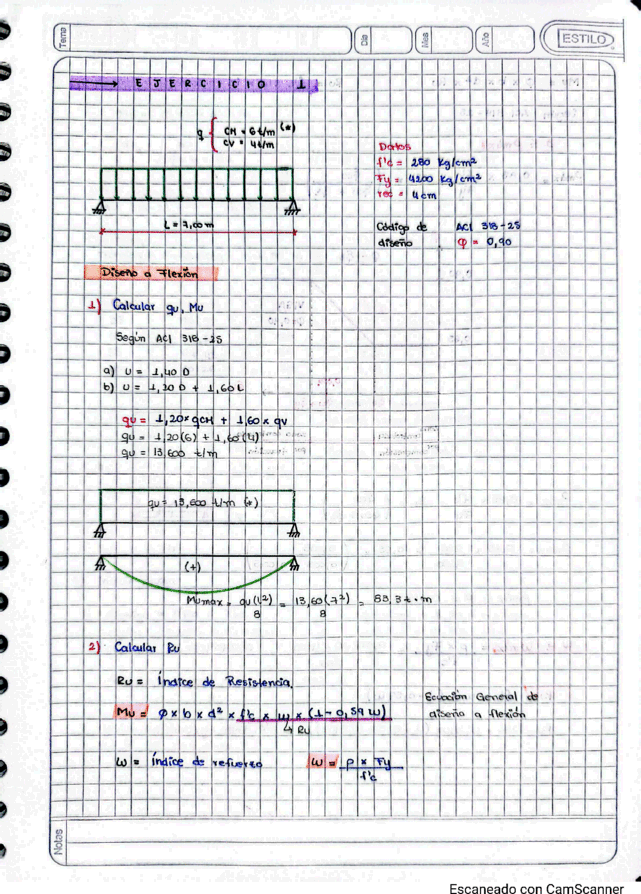 Tema
Día
Mes
Año
ESTILO
EJERCICIO 1
q { CM = 6 t/m (*)
CV = 4t/m
Datos
f'c = 280 Kg/cm²
Fy = 4200 Kg/cm²
rec = 4cm
L = 7,00m
Código de diseño ACI 318-25
φ = 0,90
Diseño a Flexión
1) Calcular qu, Mu
Según ACI 318-25
a) U = 1,40 D
b) U = 1,20 D + 1,60 L
qu = 1,20 x qCM + 1,60 x qv
qu = 1,20(6) + 1,60(4)
qu = 13,600 t/m
qu = 13,600 t/m (*)
(+)
Mumax = qu(L²)/8 = 13,60(7²)/8 = 83,3 t.m
2) Calcular Ru
Ru = Índice de Resistencia.
Mu = φ x b x d² x f'c x w x (1 - 0,59 w)
↳ Ru
Ecuación General de
diseño a flexión
w = índice de refuerzo w = ρ x Fy / f'c
Notas
Escaneado con CamScanner